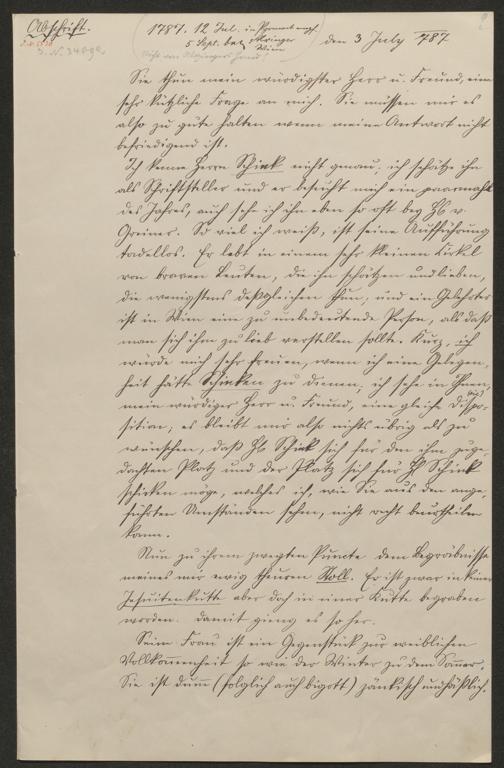 Abschrift.
1787. 12 Jul. in Pyrmont empf.
5 Sept. bea Alxinger
Wien
den 3 July 787.
(Nicht von Alxingers Hand)
Sie thun mein würdigster Herr u. Freund, eine
sehr kützliche Frage an mich. Sie müssen mir es
also zu gute halten wenn meine Antwort nicht
befriedigend ist.
Ich kenne Herrn Schink nicht genau; ich schätze ihn
als Schriftsteller und er besucht mich ein paarmahl
des Jahres, auch sehe ich ihn eben so oft bey H. v.
Greiner. So viel ich weiß, ist seine Aufführung
tadellos. Er lebt in einem sehr kleinen Zirkel
von braven Leuten, die ihn schätzen und lieben,
die wenigstens deßgleichen thun, und ein Gelehrter
ist in Wien eine zu unbedeutende Person, als daß
man sich ihm zu lieb verstellen sollte. Kurz, ich
würde mich sehr freuen, wenn ich eine Gelegen,
heit hätte Schinken zu dienen; ich sehe in Ihnen,
mein würdiger Herr u. Freund, eine gleiche Dispo-
sition; es bleibt mir also nichts übrig als zu
wünschen, daß H. Schink sich für den ihm zuge,
dachten Platz und der Platz sich für H. Schink
schicken möge, welches ich, wie Sie aus den ange,
führten Umständen sehen, nicht recht beurtheilen
kann.
Nun zu ihrem zweyten Puncte dem Begräbnisse
meines mir ewig theuren Stoll. Er ist zwar in keiner
Jesuitenkutte aber doch in einer Kutte begraben
worden. damit gieng es so her.
Seine Frau ist ein Gegenstück zur weiblichen
Vollkommenheit so wie der Winter zu dem Sommer.
Sie ist dumm (folglich auch bigott) zänkisch und häßlich.